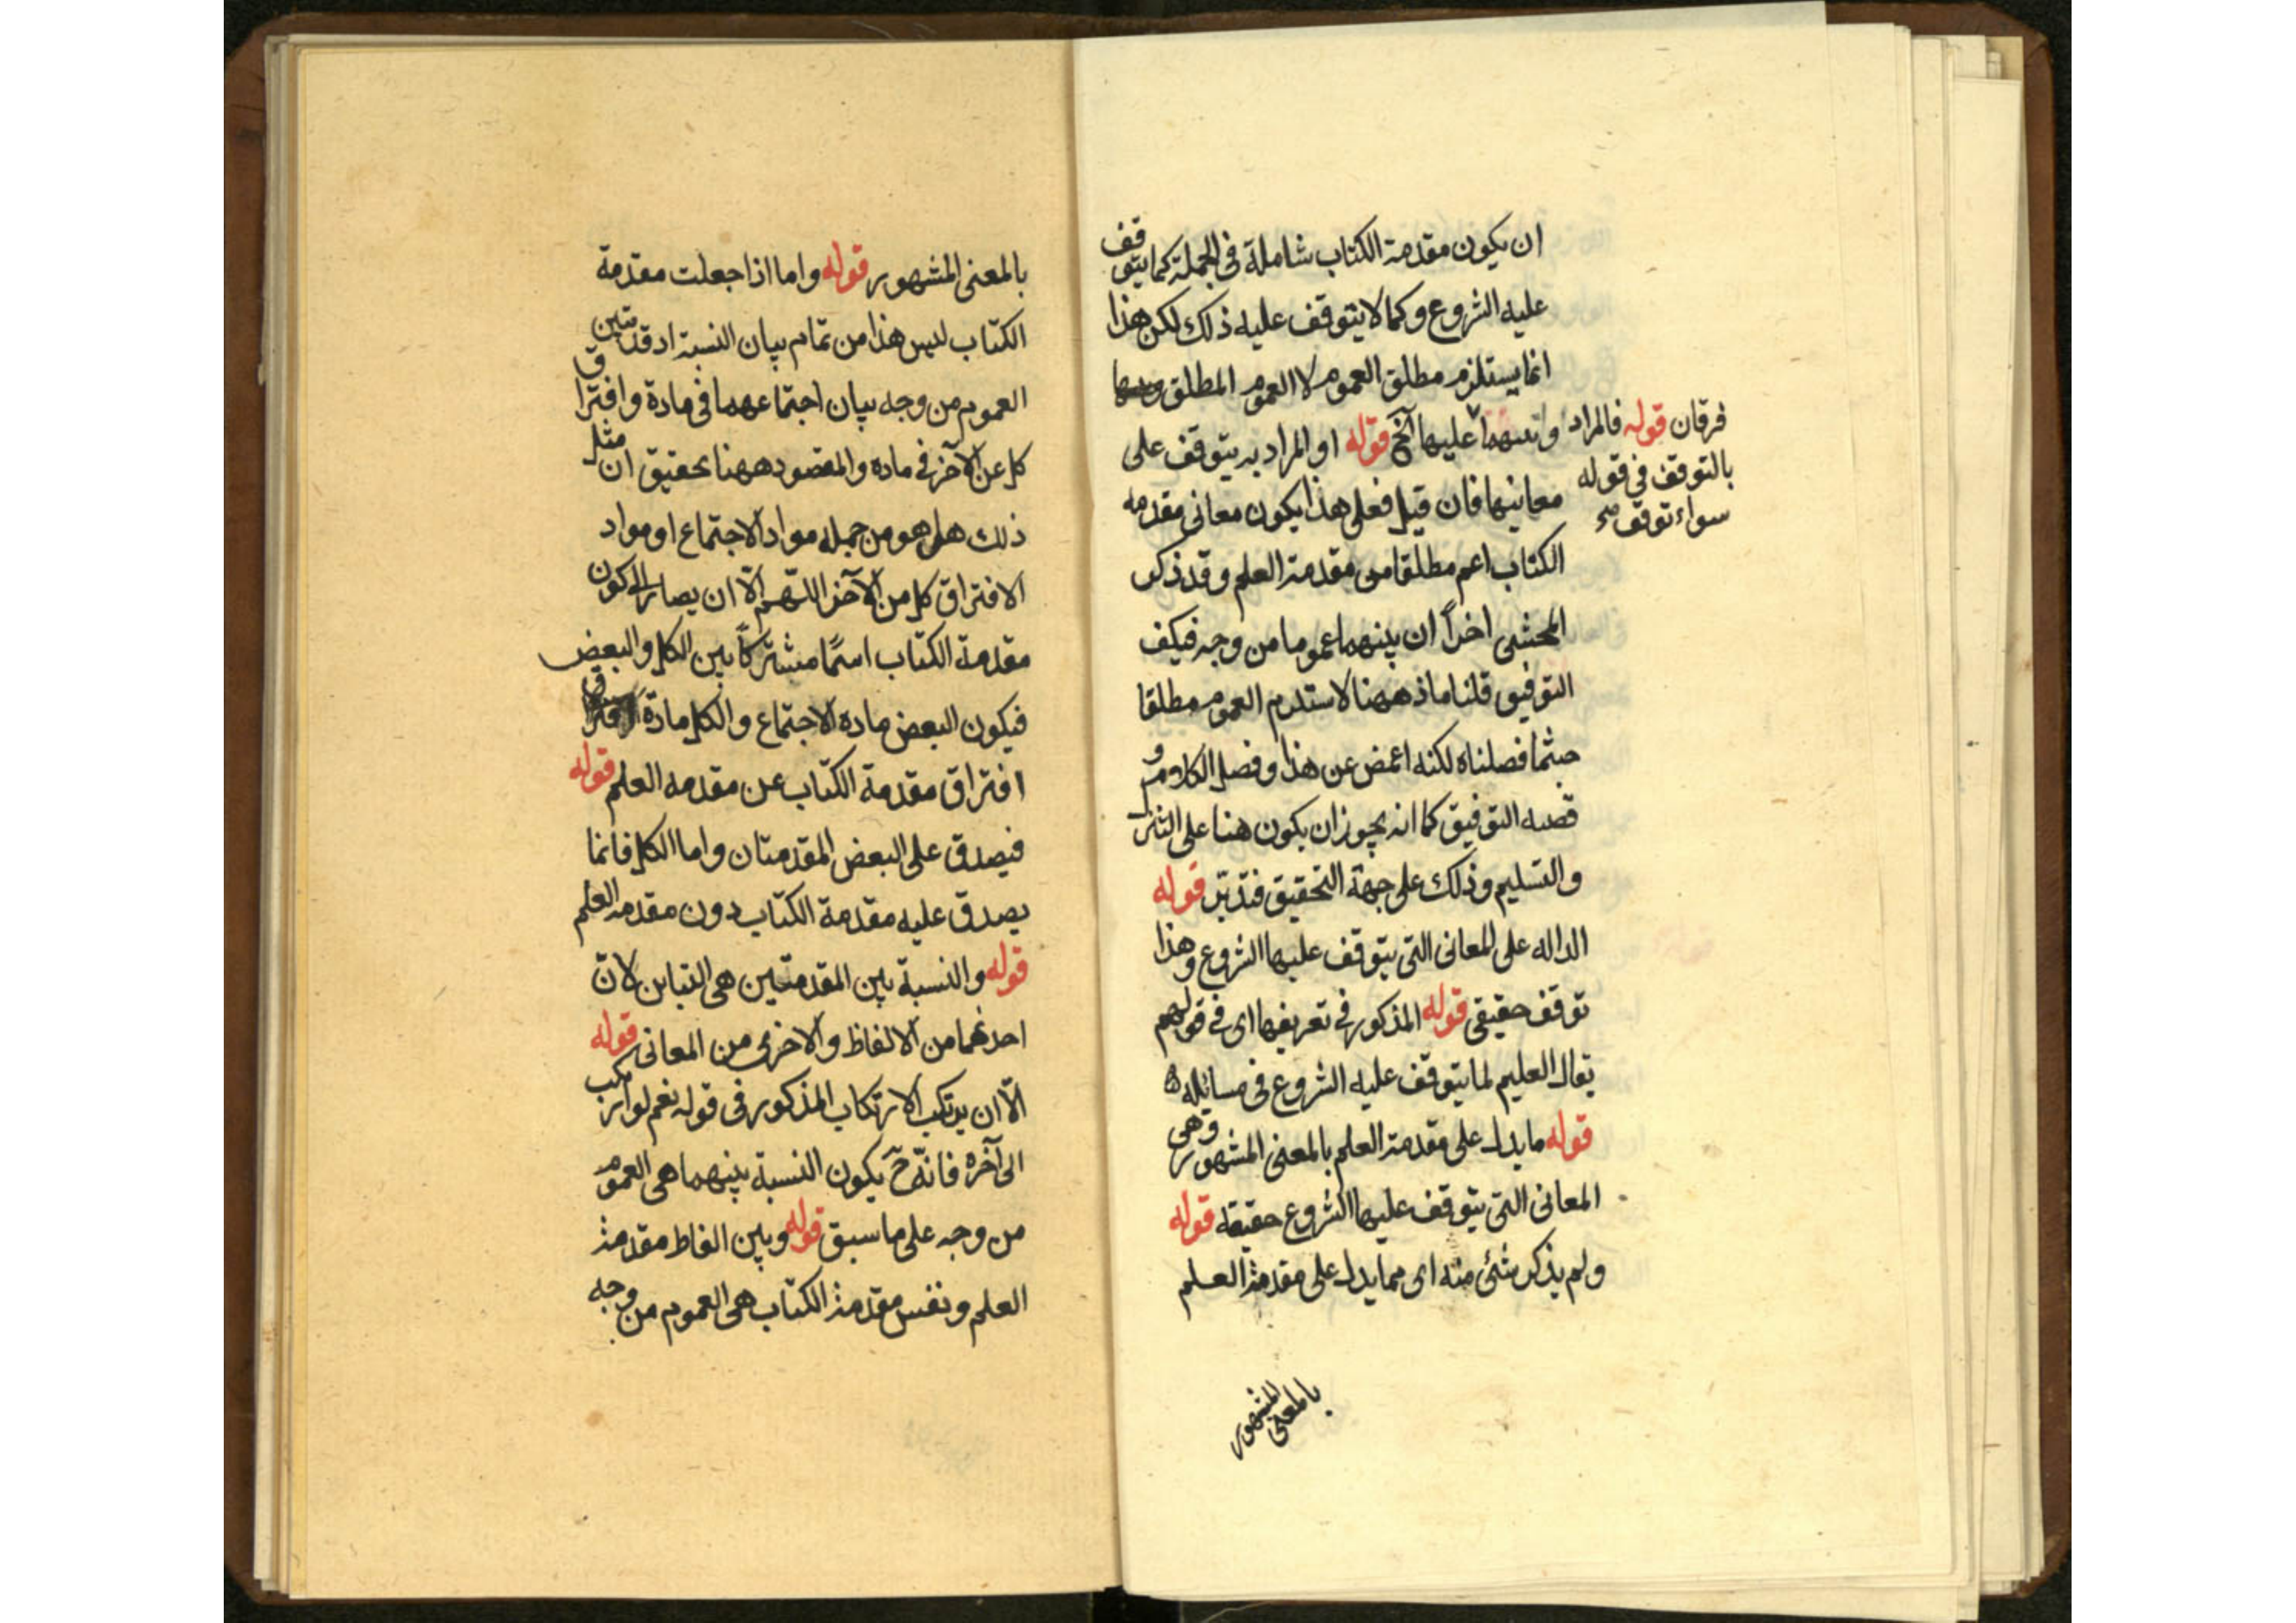 ان يكون مقدمة الكتاب شاملة في الجملة كما يتوقف
عليه الشروع وكما لا يتوقف عليه ذلك لكن هذا
انما يستلزم مطلق العموم لا العموم المطلق
عليها آلخ قوله او المراد به يتوقف على
فرقان قوله فالمراد
بالتوقف في قوله
سواء توقف
معانيها فان قيل فعلى هذا يكون معانى مقدمه
الكتاب اعم مطلقا من مقدمة العلم وقد ذكر
المحشى اخراً ان بينهما عموما من وجه فكيف
التوفيق قلنا ماذ ههنا لاستلزم العموم مطلقا
حيثما فصلناه لكنه اغمض عن هذا وفصل الكلام و
قصه التوفيق كما انه يجوز ان يكون هنا على التنزل
والتسليم وذلك على جهة التحقيق فتدبّر قوله
الداله على المعانى التى يتوقف عليها الشروع وهذا
توقف حقيقى قوله المذكور في تعريفها اى في قولهم
يقال العليم لما يتوقف عليه الشروع فى مسائله ه
قوله ما يدل على مقدمة العلم بالمعنى المشهور وهى
المعانى التى يتوقف عليها الشروع حقيقه قوله
ولم يذكر شئ منه اى مما يدل على مقدمة العلم
بالمعنى المشهور
بالمعنى المشهور قوله واما اذا جعلت مقدمة
الكتاب ليس هذا من تمام بيان النسبة اد قدتبين
العموم من وجه بيان اجتماعهما فى مادة وافتراق
كل عن الآخر في ماده والمقصود ههنا تحقيق ان مثل
ذلك هل هو من جمله مواد الاجتماع او مواد
الافتراق كل من الآخر اللّهم الّا ان يصار الى كون
مقدمة الكتاب اسمًا مشتركًا بين الكل والبعض
فيكون البعض ماده الاجتماع والكل مادة افتراق
افتراق مقدمة الكتاب عن مقدمه العلم قوله
فيصدق على البعض المقدمتان واما الكل فانما
يصدق عليه مقدمة الكتاب دون مقدمه العلم
قوله والنسبة بين المقدمتين هى التباين لانّ
احدهما من الالفاظ والاخرى من المعانى قوله
الّا ان يرتكب الارتكاب المذكور فى قوله نعم لو ارتكب
الى آخره فانّه حّ يكون النسبة بينهما هى العموم
من وجه على ما سبق قوله وبين الفاظ مقدمة
العلم ونفس مقدمة الكتاب هى العموم من وجه